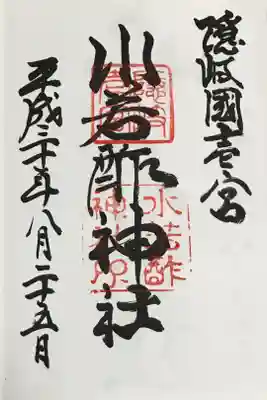 隠岐國壱宮
水若酢神社
平成二十年八月二十五日
水若酢
神社印